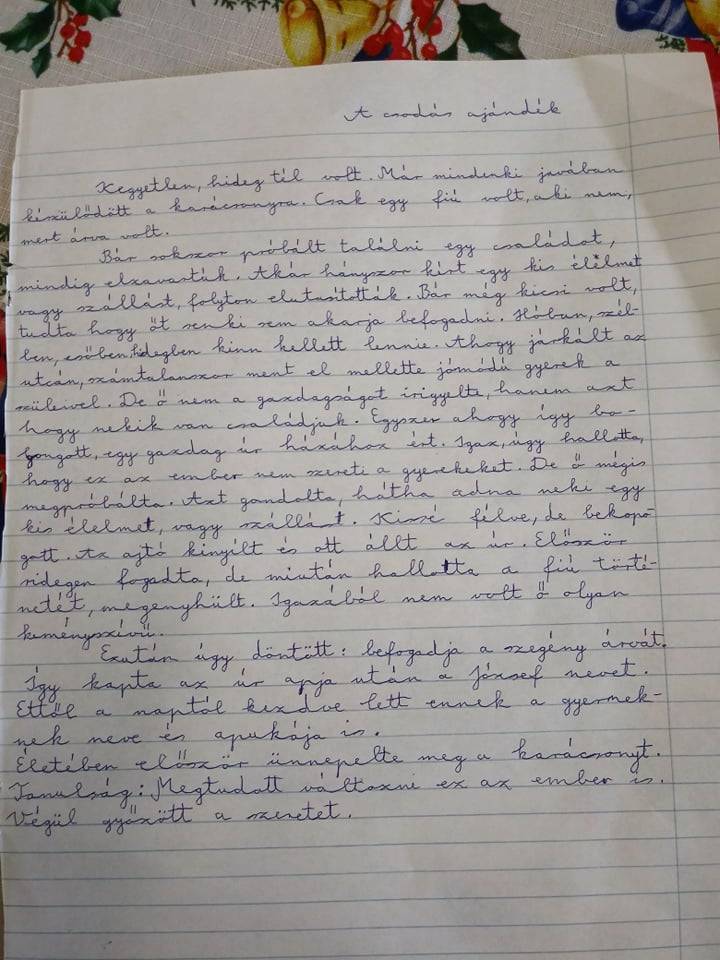 A csodás ajándék
Kegyetlen, hideg tél volt. Már mindenki javában
készülődött a karácsonyra. Csak egy fiú volt, aki nem,
mert árva volt.
Bár sokszor próbált találni egy családot,
mindig elzavarták. Akár hányszor kért egy kis élelmet
vagy szállást, folyton elutasították. Bár még kicsi volt,
tudta hogy őt senki sem akarja befogadni. Hóban, szél-
ben, esőben, hidegben kinn kellett lennie. Ahogy járkált az
utcán, számtalanszor ment el mellette jómódú gyerek a
szüleivel. De ő nem a gazdagságot irigyelte, hanem azt
hogy nekik van családjuk. Egyszer ahogy így bo-
lyongott, egy gazdag úr házához ért. Igaz, úgy hallotta,
hogy ez az ember nem szereti a gyerekeket. De ő mégis
megpróbálta. Azt gondolta, hátha adna neki egy
kis élelmet, vagy szállást. Kissé félve, de bekopo-
gott. Az ajtó kinyílt és ott állt az úr. Először
ridegen fogadta, de miután hallotta a fiú törté-
netét, megenyhült. Igazából nem volt ő olyan
keményszívű.
Ezután úgy döntött: befogadja a szegény árvát.
Így kapta az úr apja után a József nevet.
Ettől a naptól kezdve lett ennek a gyermek-
nek neve és apukája is.
Életében először ünnepelte meg a karácsonyt.
Tanulság: Megtudott változni ez az ember is.
Végül győzött a szeretet.